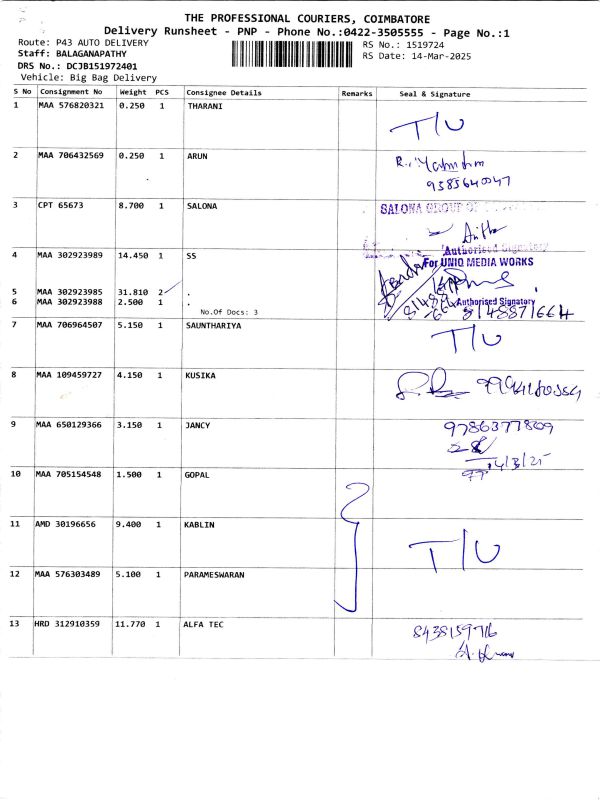 THE PROFESSIONAL COURIERS, COIMBATORE
Delivery Runsheet - PNP - Phone No.:0422-3505555 - Page No.:1
Route: P43 AUTO DELIVERY
RS No.: 1519724
Staff: BALAGANAPATHY
RS Date: 14-Mar-2025
DRS No.: DCJB151972401
Vehicle: Big Bag Delivery
S No Consignment No Weight PCS Consignee Details Remarks Seal & Signature
1 MAA 576820321 0.250 1 THARANI
T/U
2 MAA 706432569 0.250 1 ARUN
9585640047
3 CPT 65673 8.700 1 SALONA
SALONA GROUP OF
Authorised Signatory
4 MAA 302923989 14.450 1 SS
For UNIQ MEDIA WORKS
5 MAA 302923985 31.810 2 .
6 MAA 302923988 2.500 1 .
Authorised Signatory
No.Of Docs: 3
8148871664
7 MAA 706964507 5.150 1 SAUNTHARIYA
T/U
8 MAA 109459727 4.150 1 KUSIKA
9 MAA 650129366 3.150 1 JANCY
9786377809
14/3/25
10 MAA 705154548 1.500 1 GOPAL
11 AMD 30196656 9.400 1 KABLIN
T/U
12 MAA 576303489 5.100 1 PARAMESWARAN
13 HRD 312910359 11.770 1 ALFA TEC
8438159716